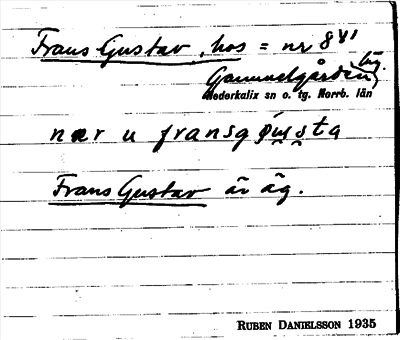 Frans Gustav, hos = nr 841
Gammelgården, by.
Nederkalix sn o. tg. Norrb. län
nær u
Frans Gustav är äg.
RUBEN DANIELSSON 1935